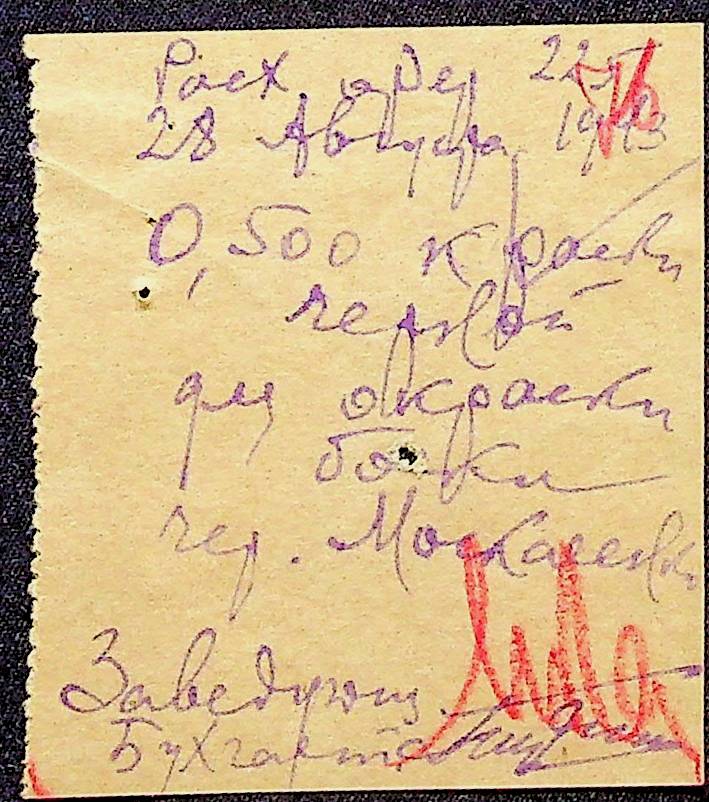 Расх орд 225
28 Августа 1943
0,500 краски
черной
для окраски
бочки
чер. Москаленко
Заведующ.
Бухгалтер